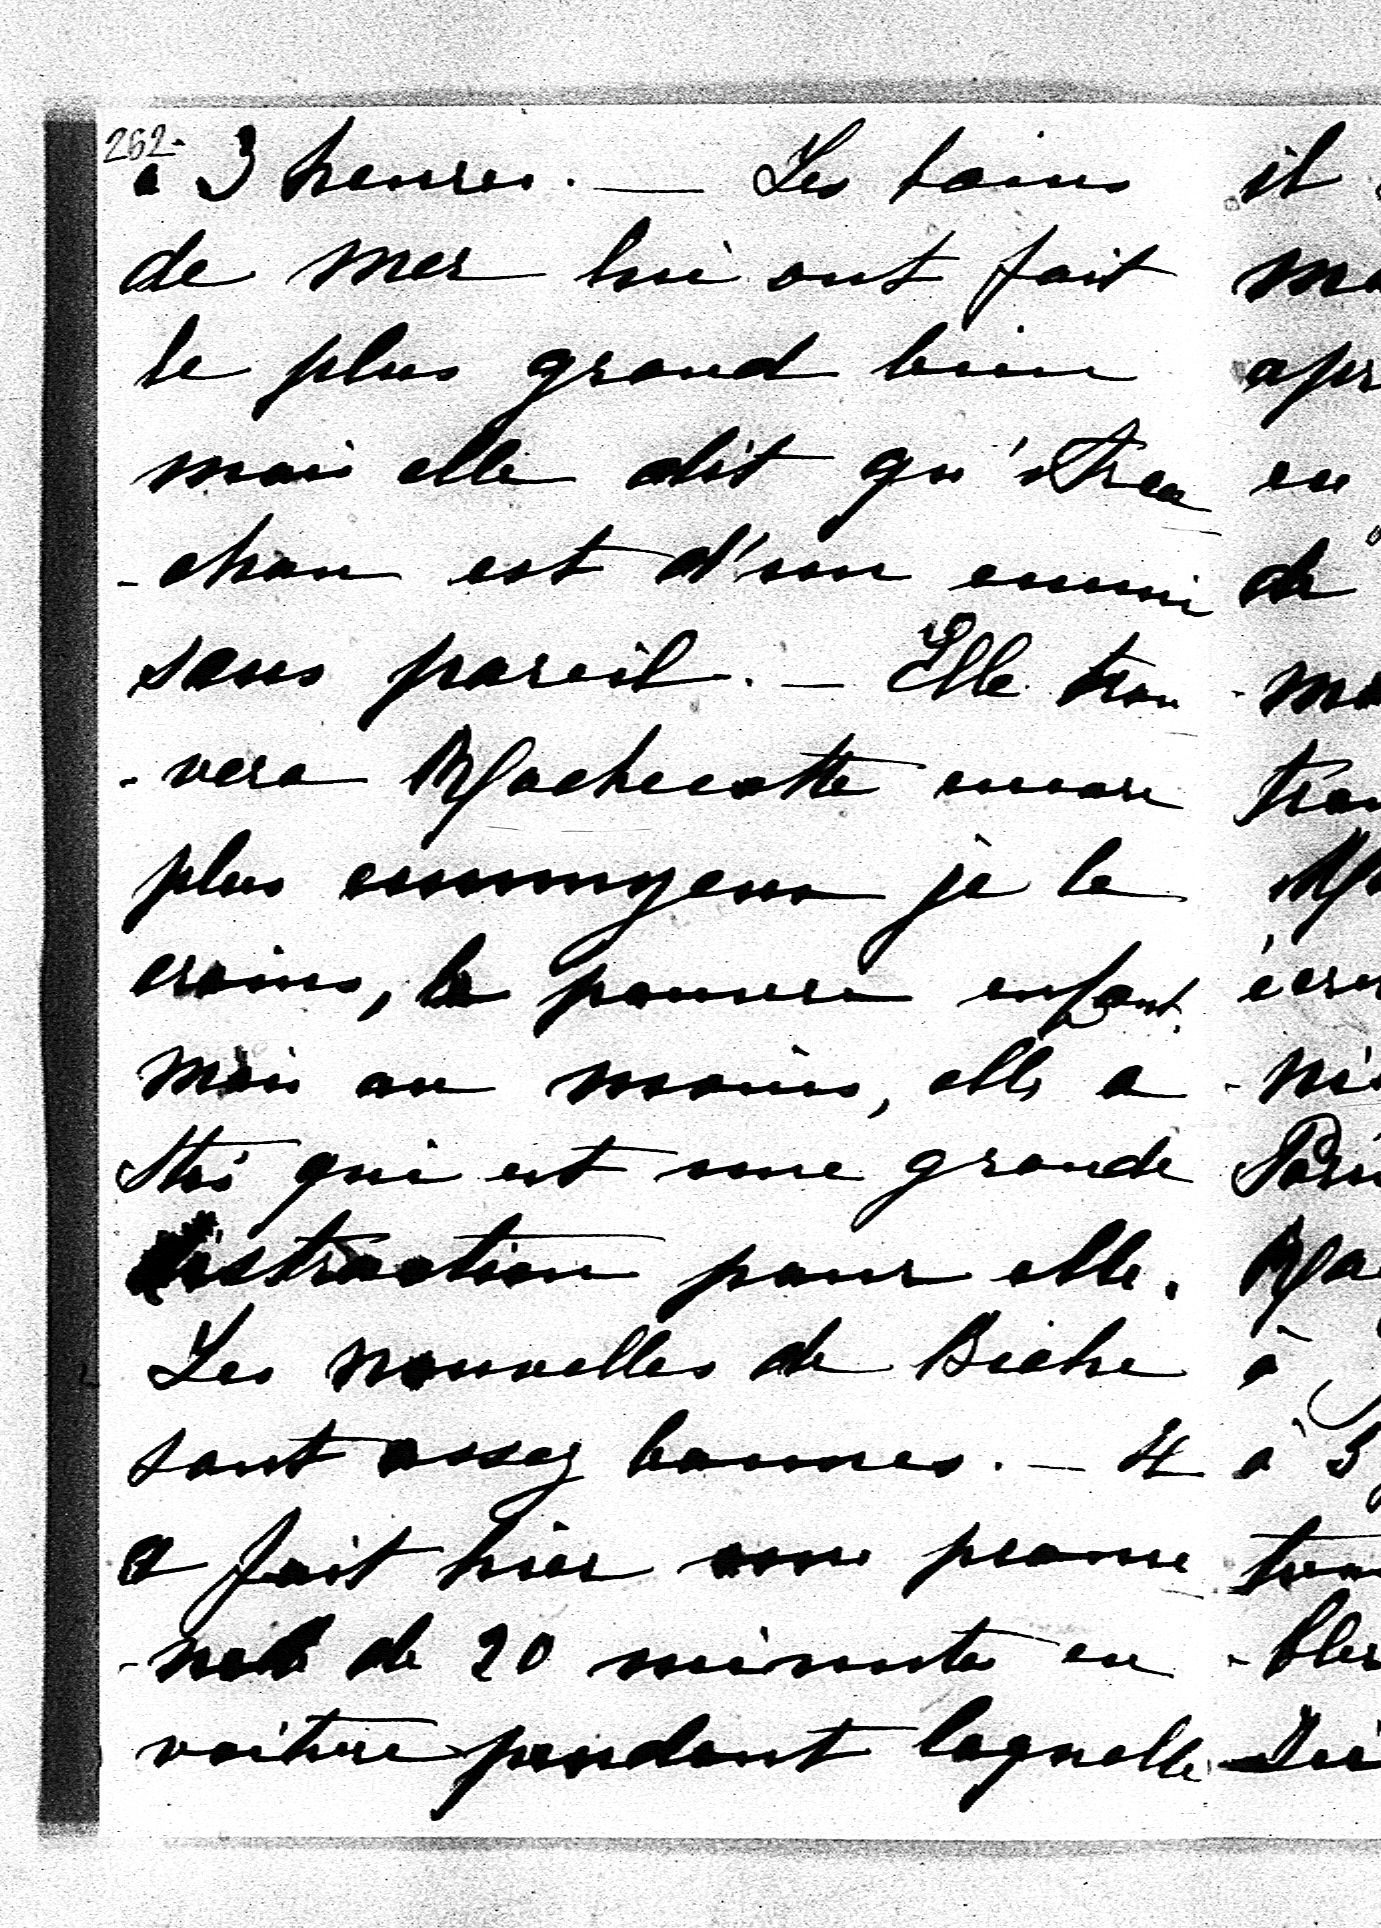 262.
à 3 heures. — Les bains
de mer lui ont fait
le plus grand bien
mais elle dit qu'Arca
-chon est d'un ennui
sans pareil. — Elle trou
-vera Rochecotte encore
plus ennuyeux je le
crains, la pauvre enfant.
mais au moins, elle a
qui est une grande
distraction pour elle.
Les nouvelles de Biche
sont assez bonnes. — Il
a fait hier une prome
-nade de 20 minutes en
voiture pendant laquelle
il
apr
en
de
à
à 3